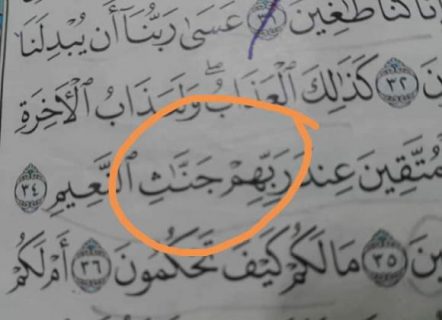 نَّا كُنَّا طَٰغِينَ ٣١ عَسَىٰ رَبُّنَآ أَن يُبْدِلَنَا
نَ ٣٢ كَذَٰلِكَ ٱلْعَذَابُ ۖ وَلَعَذَابُ ٱلْأَخِرَةِ
مُتَّقِينَ عِندَ رَبِّهِمْ جَنَّٰثِ ٱلنَّعِيمِ ٣٤
ينَ ٣٥ مَا لَكُمْ كَيْفَ تَحْكُمُونَ ٣٦ أَمْ لَكُمْ